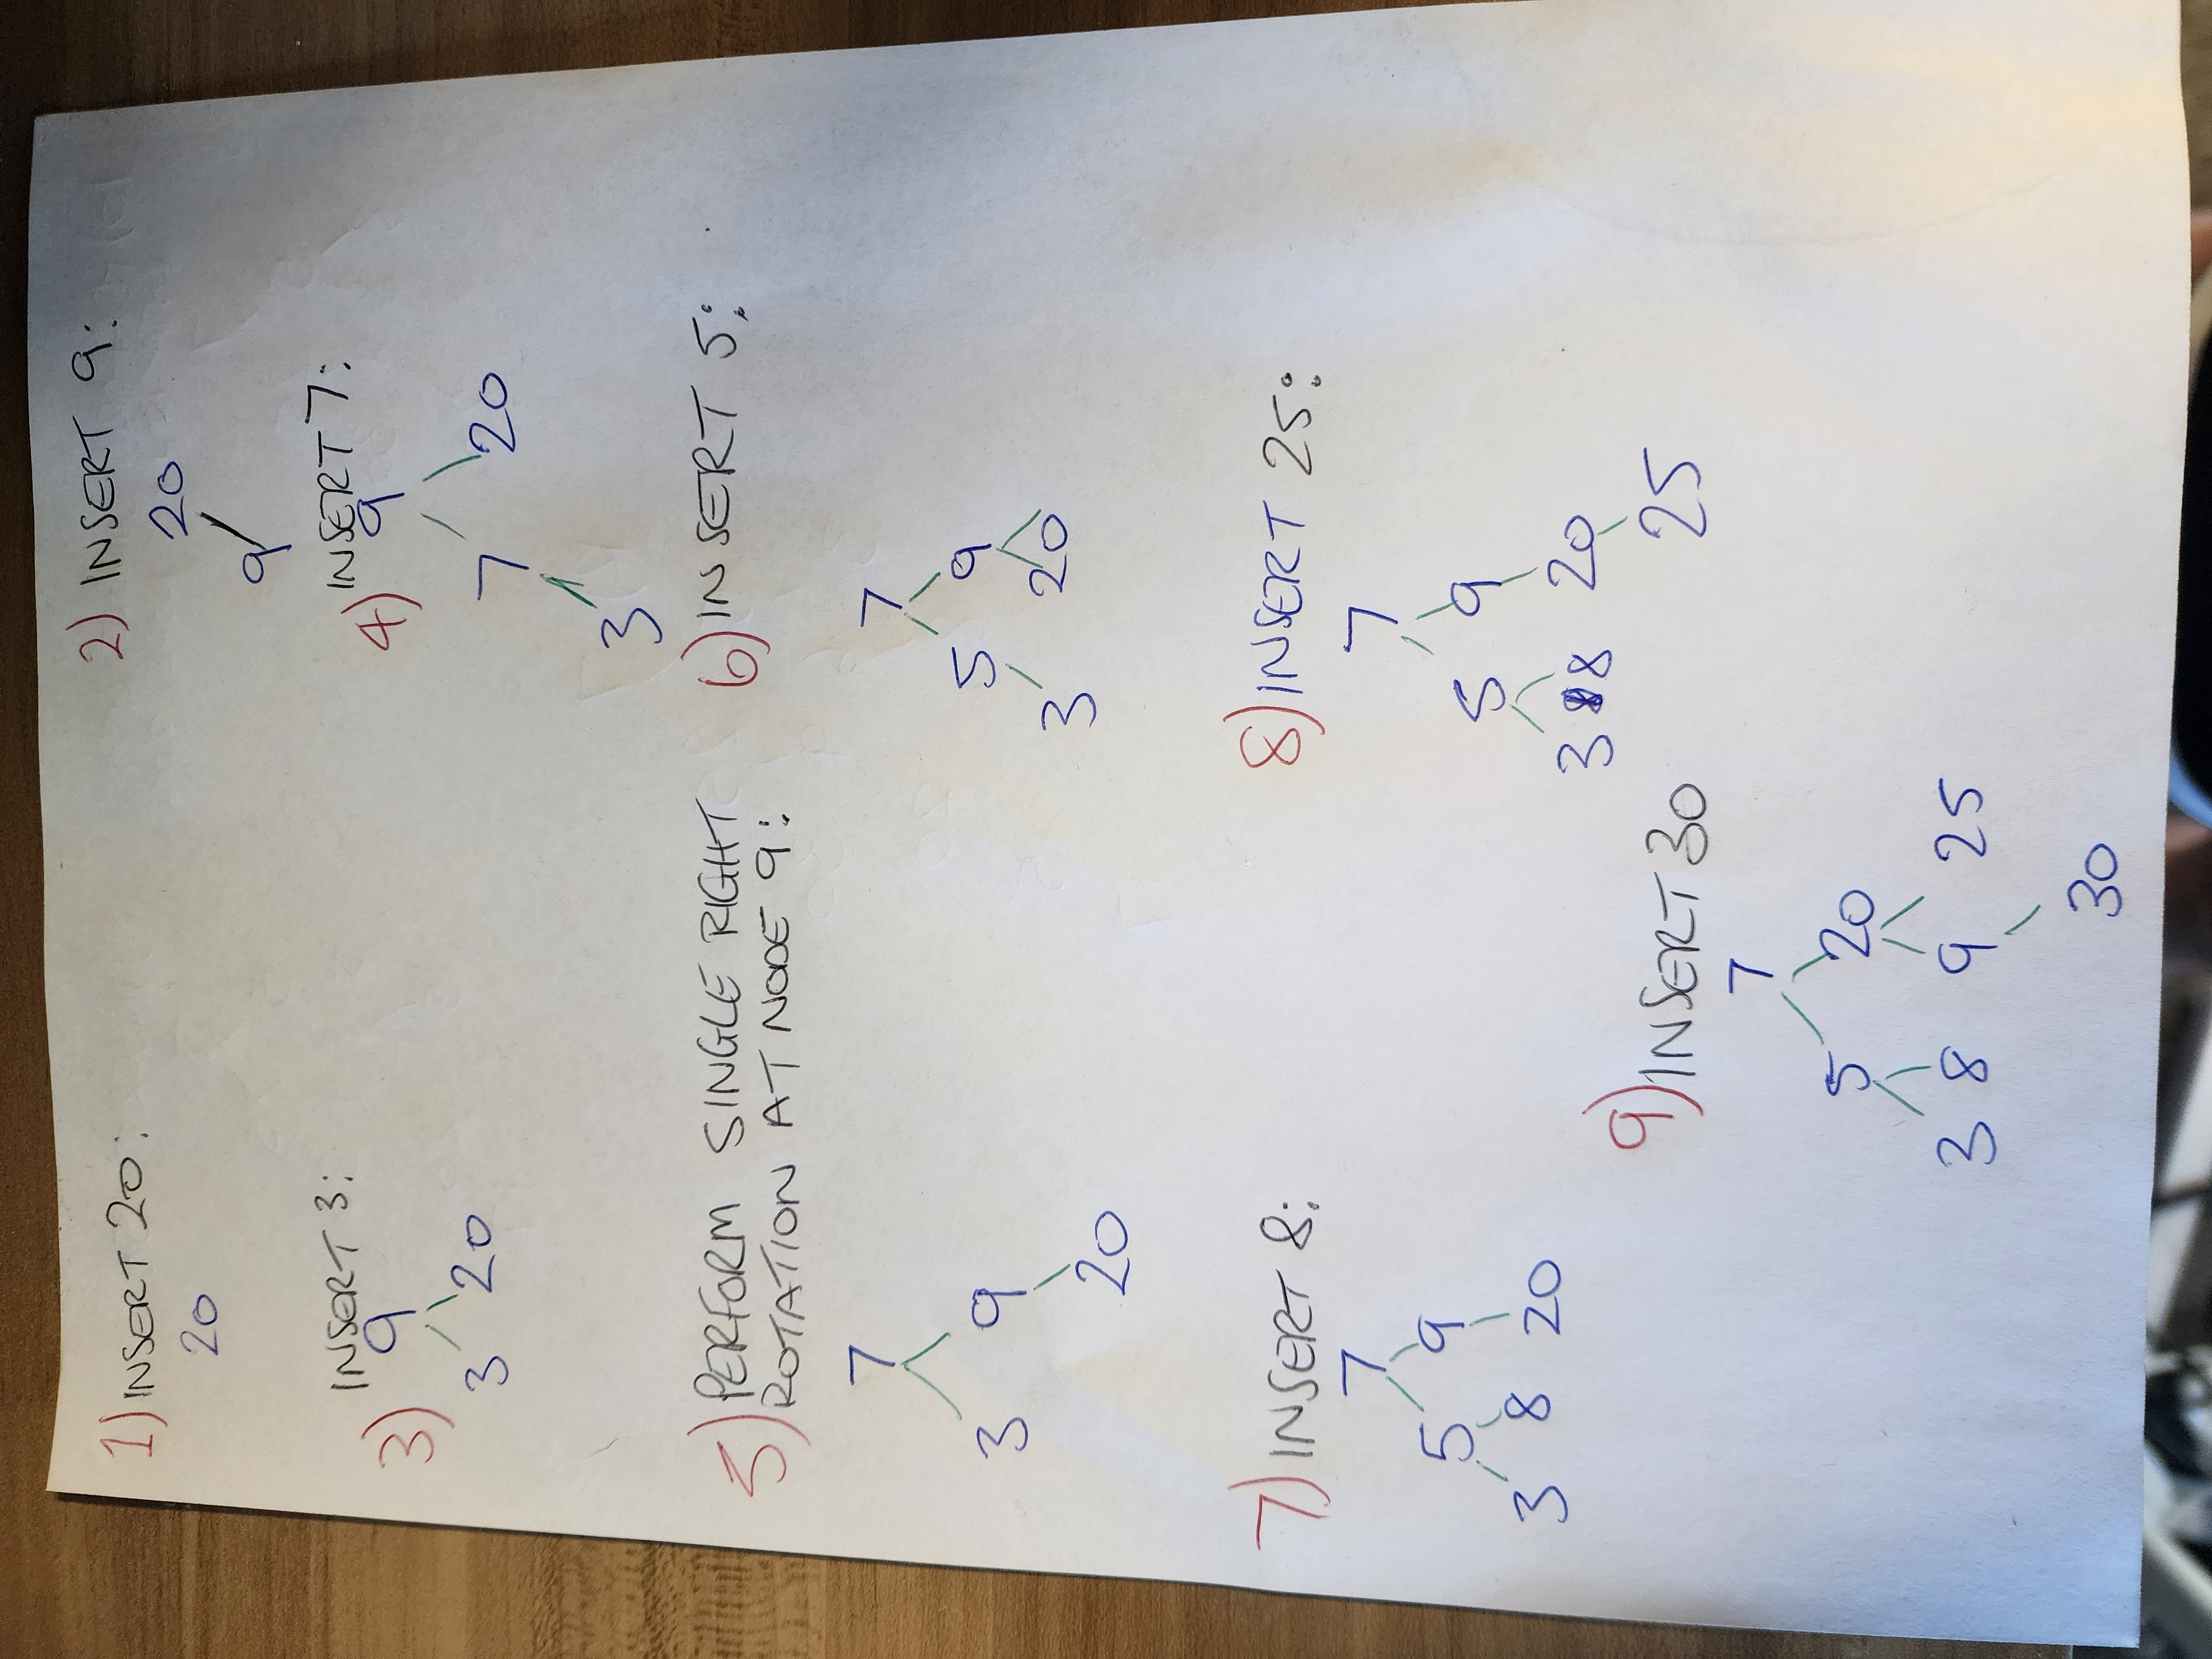 1) INSERT 20:
20
2) INSERT 9:
20
9
3) INSERT 3:
9
3 20
4) INSERT 7:
9
7 20
3
5) PERFORM SINGLE RIGHT
ROTATION AT NODE 9:
7
3 9
20
6) INSERT 5:
7
5 9
3 20
7) INSERT 8:
7
5 9
3 8 20
8) INSERT 25:
7
5 9
3 8 20
25
9) INSERT 30
7
5 20
3 8 9 25
30